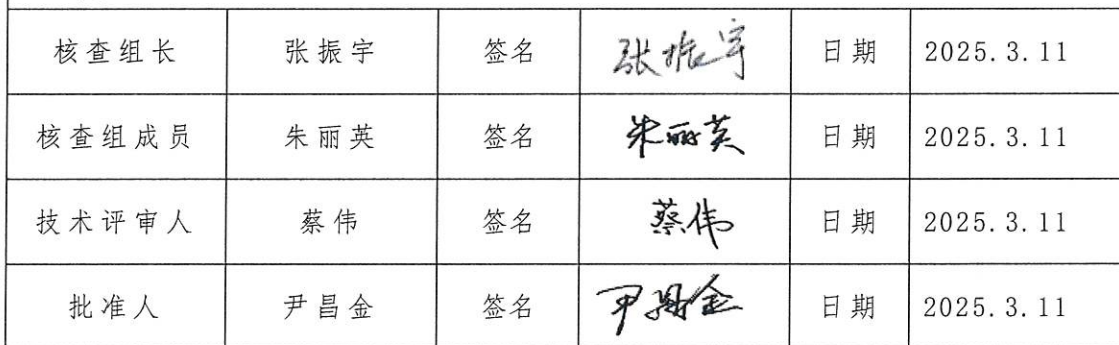 核查组长 张振宇 签名 张振宇 日期 2025.3.11
核查组成员 朱丽英 签名 朱丽英 日期 2025.3.11
技术评审人 蔡伟 签名 蔡伟 日期 2025.3.11
批准人 尹昌金 签名 尹昌金 日期 2025.3.11